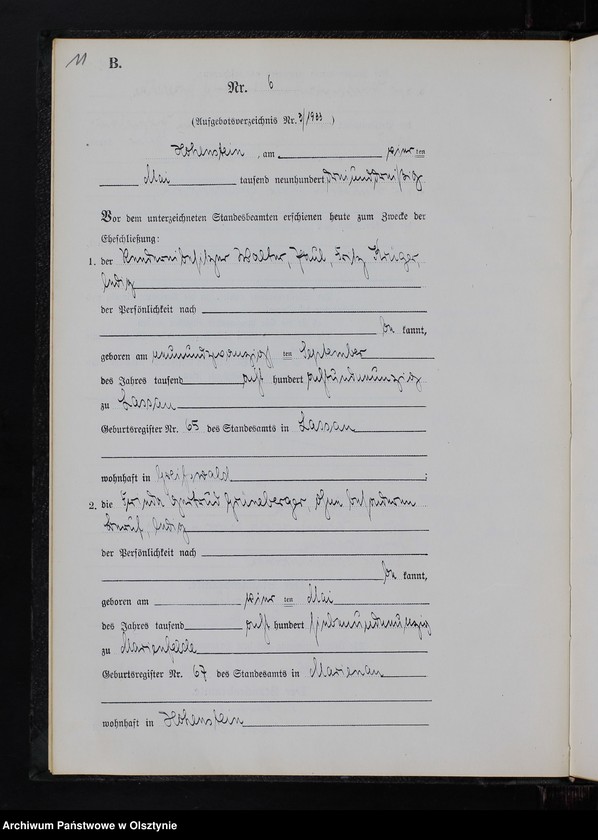 11
B.
Nr. 6
(Aufgebotsverzeichnis Nr. 3/1933 )
Hohenstein, am vier ten
Mai tausend neunhundert dreiunddreißig
Vor dem unterzeichneten Standesbeamten erschienen heute zum Zwecke der
Eheschließung:
1. der Walter, Paul, Fritz Krüger,
ledig
der Persönlichkeit nach
be kannt,
geboren am neunundzwanzigs ten September
des Jahres tausend acht hundert achtundneunzig
zu Lassan
Geburtsregister Nr. 65 des Standesamts in Lassan
wohnhaft in Greifswald ;
2. die Gertrud Grüneberger, ohne besonderen
Beruf, ledig
der Persönlichkeit nach
be kannt,
geboren am vier ten Mai
des Jahres tausend acht hundert siebenundneunzig
zu Marienfelde
Geburtsregister Nr. 67 des Standesamts in Marienau
wohnhaft in Hohenstein
Archiwum Państwowe w Olsztynie